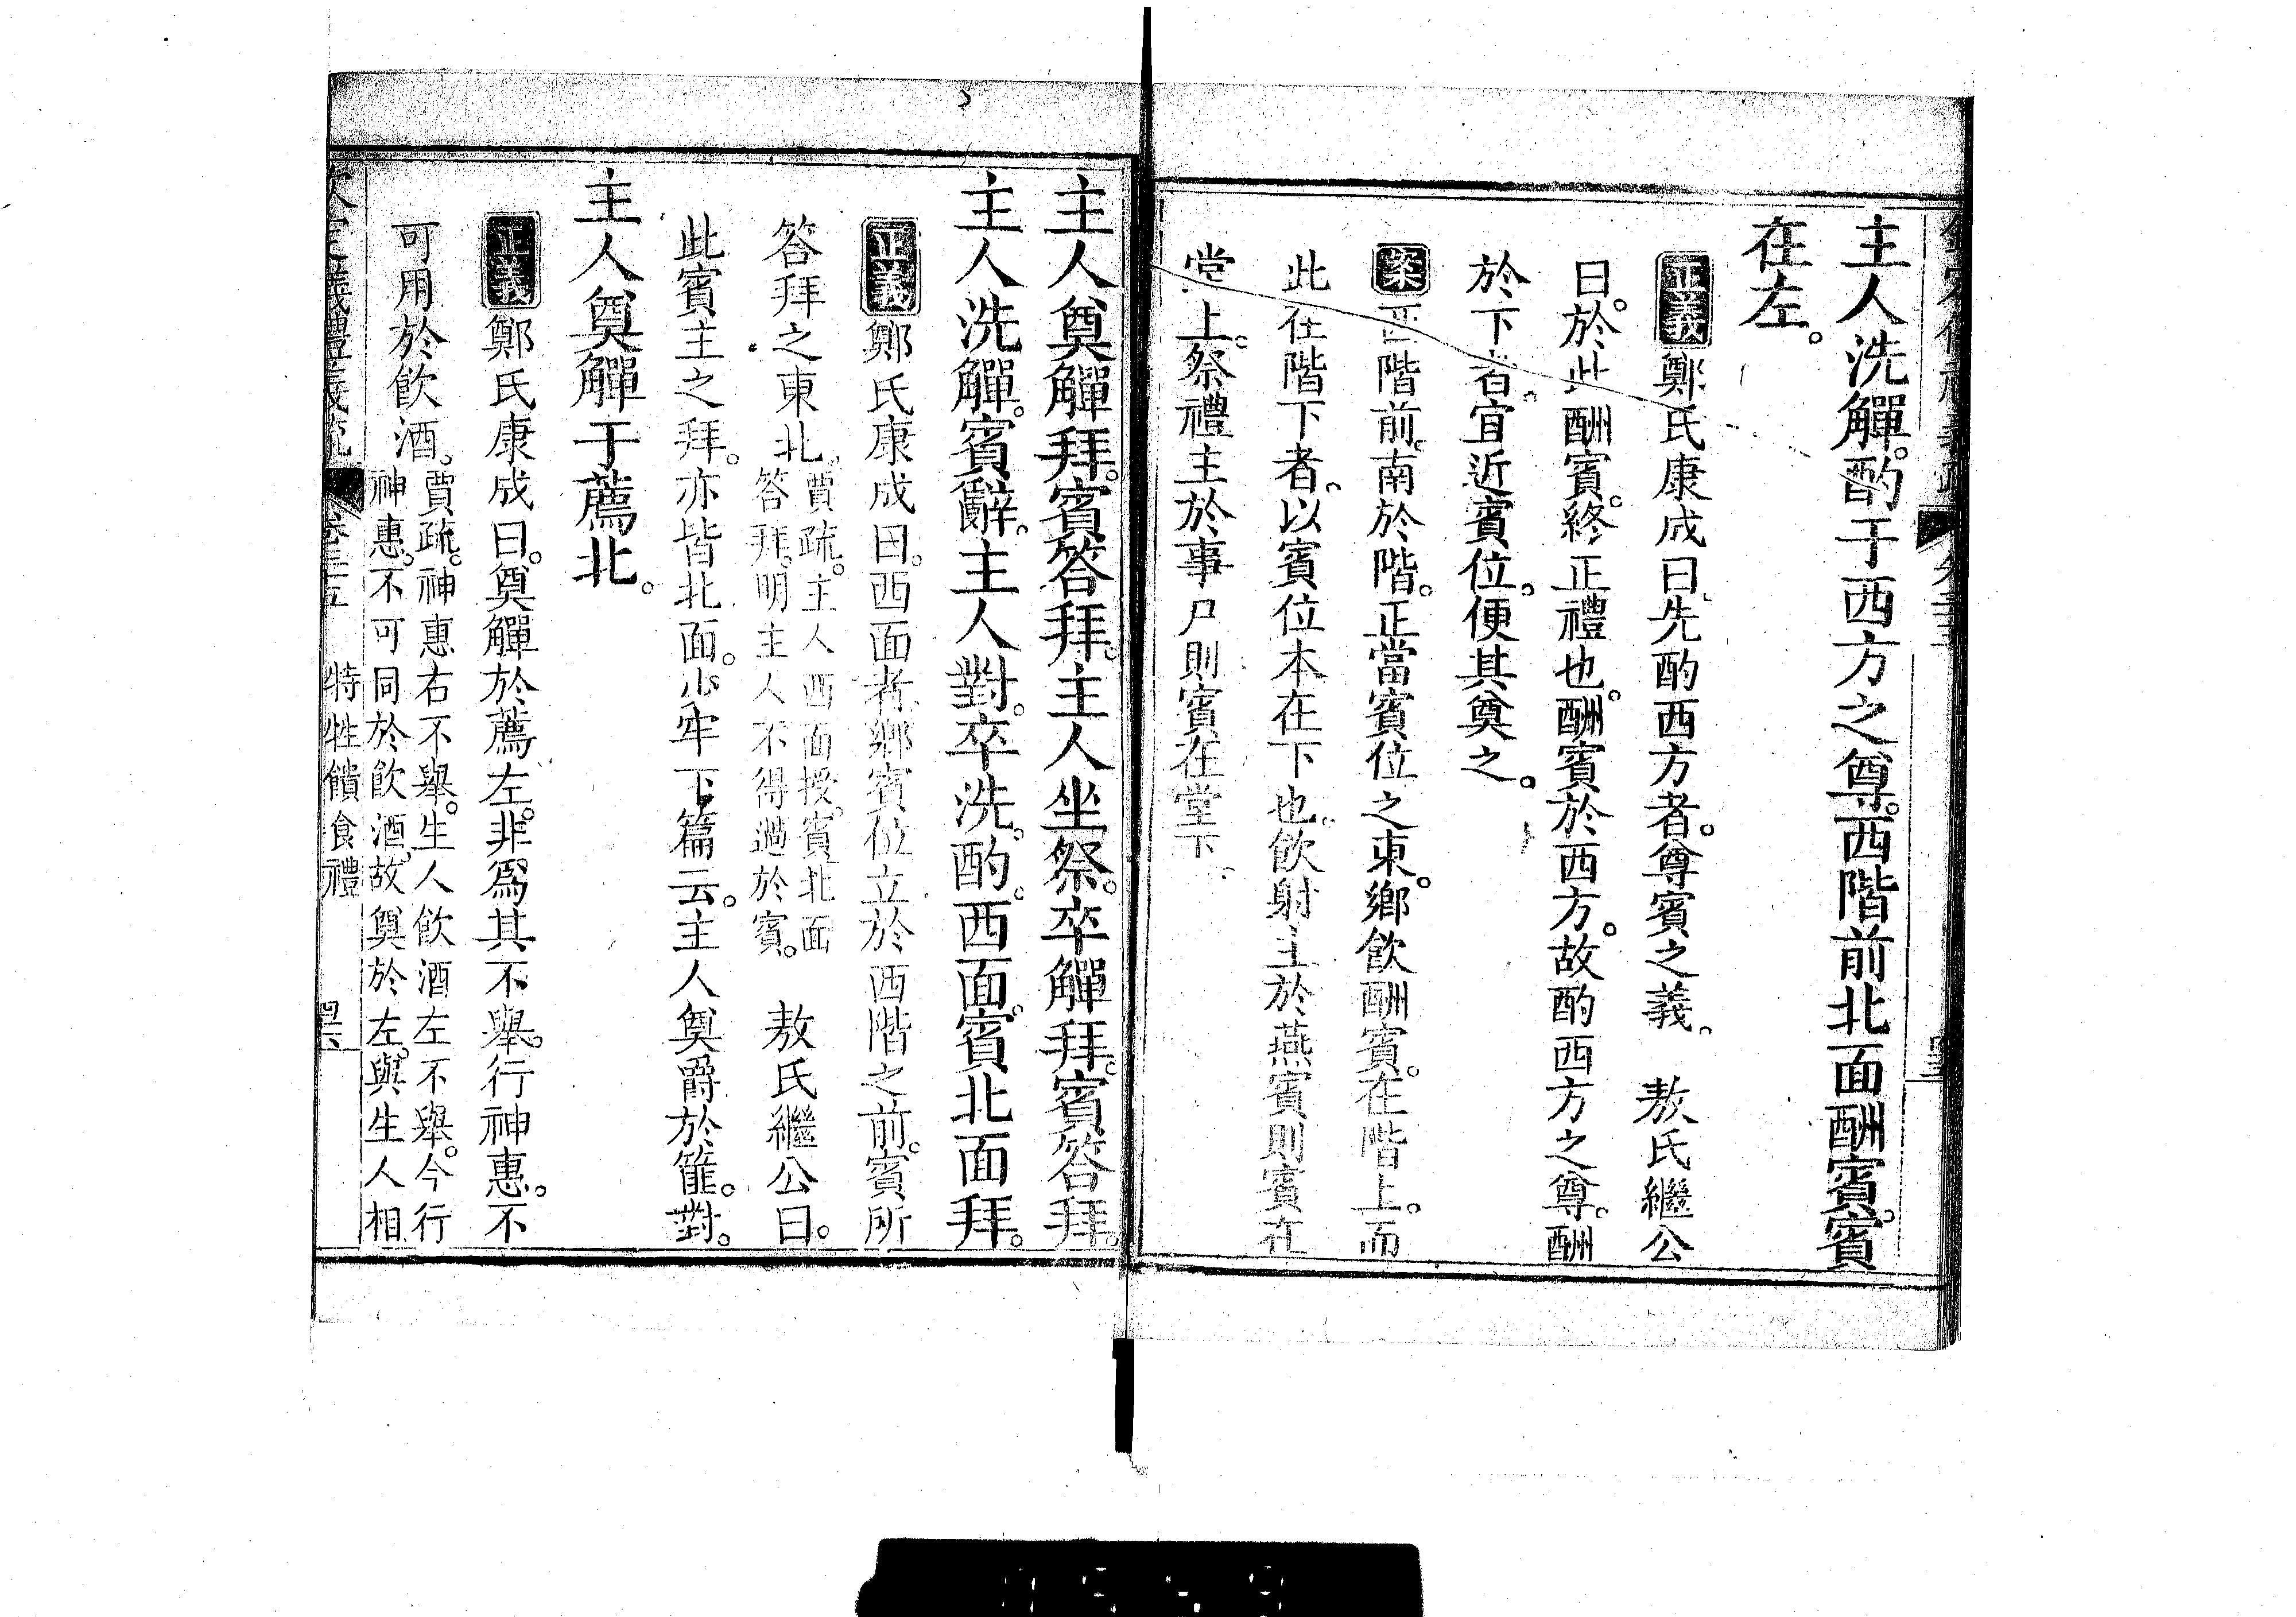 主人洗觶。酌于西方之尊。西階前北面酬賓。賓
在左。
正義鄭氏康成曰。先酌西方者。尊賓之義。　敖氏繼公
曰。於此酬賓。終正禮也。酬賓於西方。故酌西方之尊。酬
於下者。宜近賓位。便其奠之。
案西階前。南於階。正當賓位之東。鄉飲酬賓。在階上。而
此在階下者。以賓位本在下也。飲射主於燕賓則賓在
堂上。祭禮主於事尸則賓在堂下。
主人奠觶拜。賓答拜。主人坐祭。卒觶拜。賓答拜。
主人洗觶。賓辭。主人對。卒洗。酌。西面。賓北面拜。
正義鄭氏康成曰。西面者。鄉賓位立於西階之前。賓所
答拜之東北。賈疏。主人西面授。賓北面
答拜。明主人不得過於賓。　敖氏繼公曰。
此賓主之拜。亦皆北面。少牢下篇云。主人奠爵於篚。對。
主人奠觶于薦北。
正義鄭氏康成曰。奠觶於薦左。非爲其不舉。行神惠。不
可用於飲酒。賈疏。神惠右不舉。生人飲酒左不舉。今行
神惠。不可同於飲酒。故奠於左。與生人相
儀禮義疏　卷三十五　特牲饋食禮